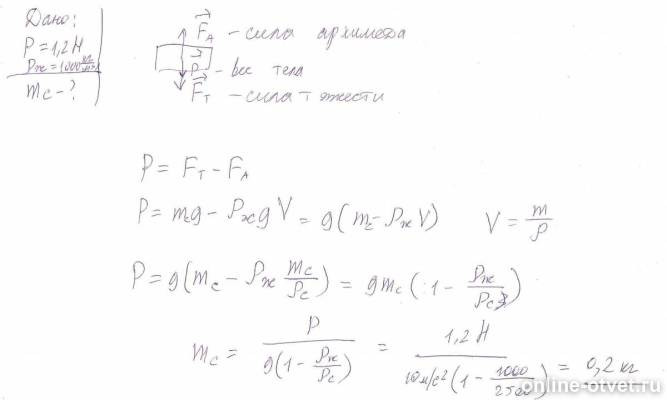 Дано:
P = 1,2 Н
ρж = 1000 кг/м³
mс - ?
F⃗А - сила архимеда
P⃗ - вес тела
F⃗Т - сила тяжести
P = FТ - FА
P = mсg - ρжgV = g(mс - ρжV) V = m/ρ
P = g(mс - ρж mс/ρс) = gmс(1 - ρж/ρс)
mс = P/(g(1 - ρж/ρс)) = 1,2 Н/(10 м/с²(1 - 1000/2500)) = 0,2 кг
online-otvet.ru